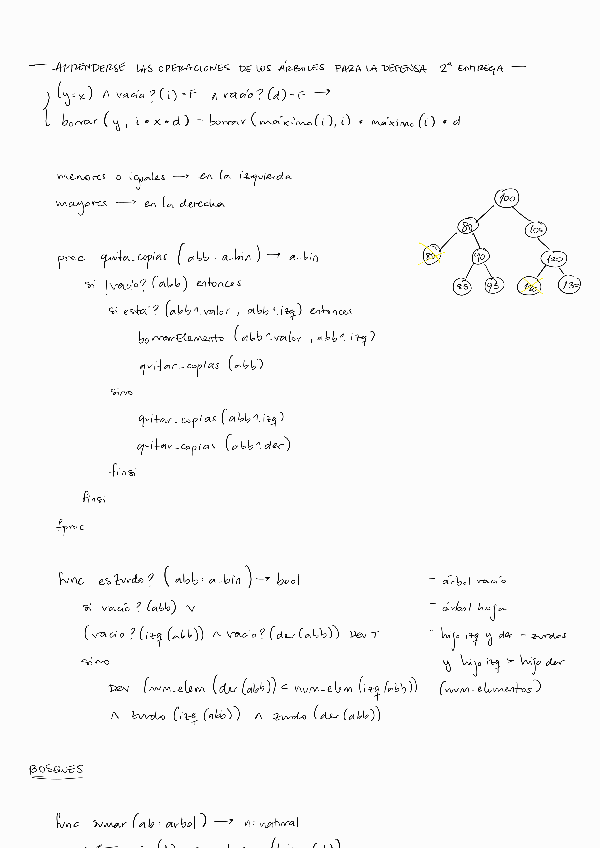 — APRENDERSE LAS OPERACIONES DE LOS ÁRBOLES PARA LA DEFENSA 2ª ENTREGA —
(y=x) ∧ vacío?(i)=F ∧ vacío?(d)=F →
borrar(y, i•x•d) = borrar(máximo(i), i) • máximo(i) • d
menores o iguales → en la izquierda
mayores → en la derecha
100
80
90
120
85
95
130
proc quita_copias (abb: a.bin) → a.bin
si !vacío? (abb) entonces
si está? (abb^.valor, abb^.izq) entonces
borrarElemento (abb^.valor, abb^.izq)
quitar_copias (abb)
sino
quitar_copias (abb^.izq)
quitar_copias (abb^.der)
finsi
finsi
fproc
func eszurdo? (abb: a.bin) → bool
si vacío? (abb) ∨
(vacío?(izq(abb)) ∧ vacío?(der(abb)) DEV T
sino
DEV (num_elem (der(abb)) < num_elem (izq(abb))
∧ zurdo (izq(abb)) ∧ zurdo (der(abb))
- árbol vacío
- árbol hoja
- hijo izq y der = zurdos
y hijo izq > hijo der
(num_elementos)
BOSQUES
func sumar (ab: arbol) → n: natural